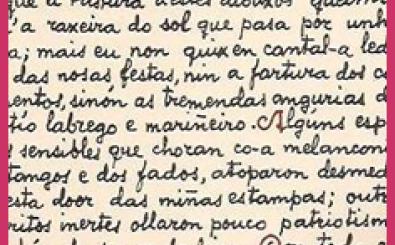 que a
a raxeira do sol que pasa por unh
a; mais eu non quixen cantal-a led
das nosas festas, nin a fartura dos c
mentos, sinón as tremendas angurias d
tío labrego e mariñeiro. Algúns esp
s sensibles que choran co-a melancon
tangos e dos fados, atoparon desmed
esta door das miñas estampas; outr
ritos inertes ollaron pouco patriotism